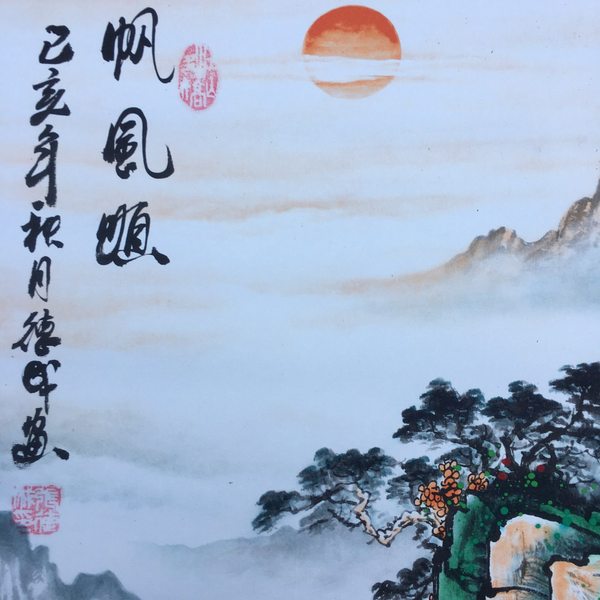 帆風順
己亥年秋月德成畫